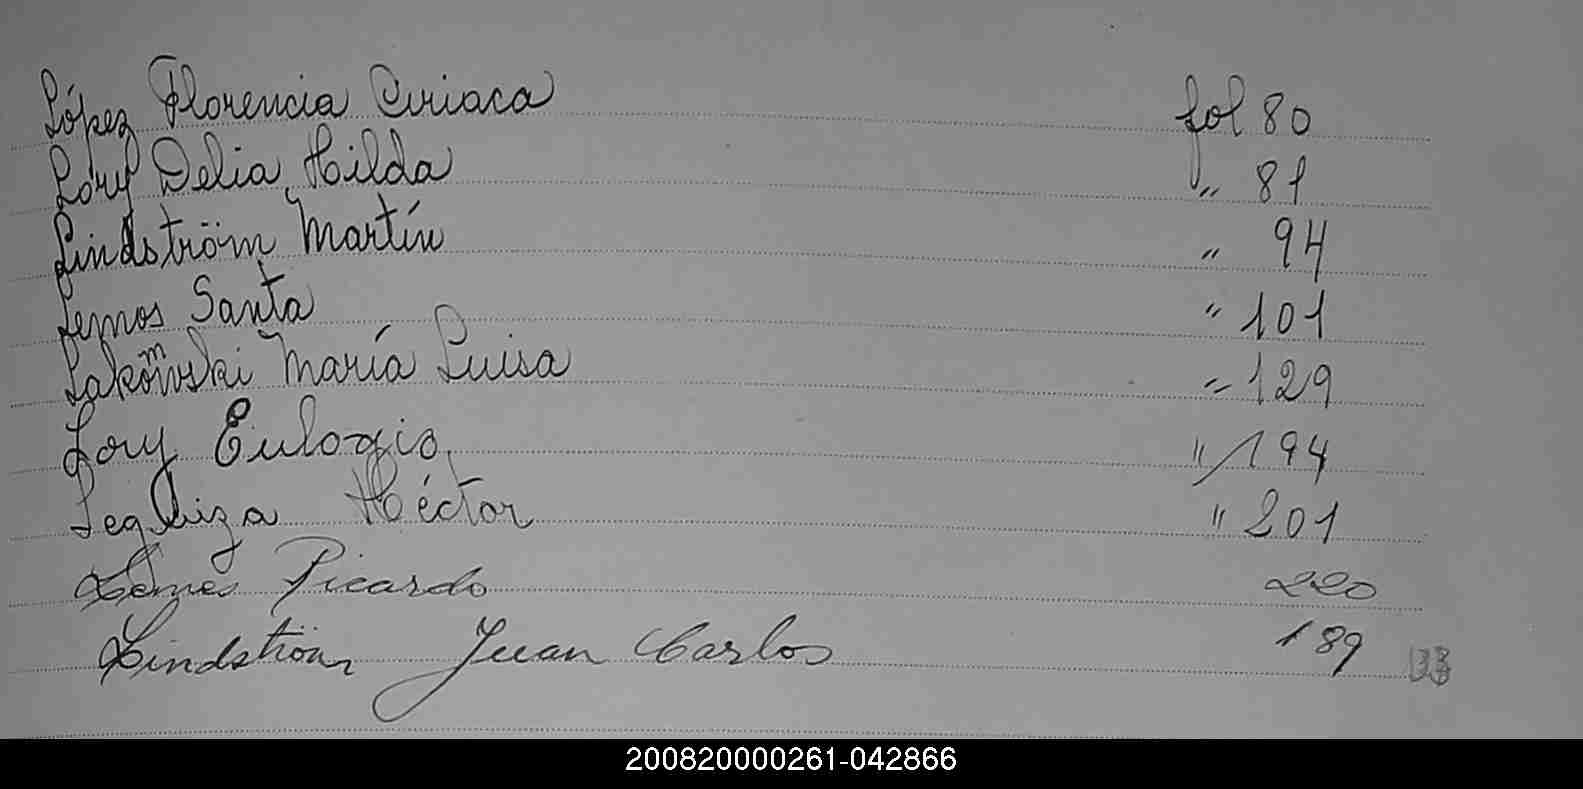 López Florencia Ciriaca fol 80
Lory Delia Hilda " 81
Lindström Martín " 94
Lemos Santa " 101
Lakomski María Luisa " 129
Lory Eulogio " 194
Leguiza Héctor " 201
Lemes Ricardo 220
Lindström Juan Carlos 189
200820000261-042866